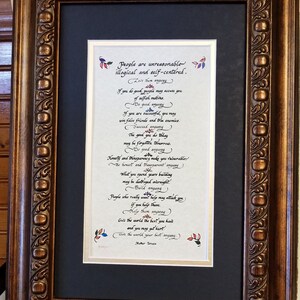 People are unreasonable
illogical and self-centered.
Love them anyway
If you do good, people may accuse you
of selfish motives.
Do good anyway
If you are successful, you may
win false friends and true enemies
Succeed anyway
The good you do today
may be forgotten tomorrow.
Do good anyway
Honesty and transparency make you vulnerable
Be honest and transparent anyway
What you spend years building
may be destroyed overnight
Build anyway
People who really want help may attack you
if you help them.
Help them anyway
Give the world the best you have
and you may get hurt
Give the world your best anyway
Mother Teresa